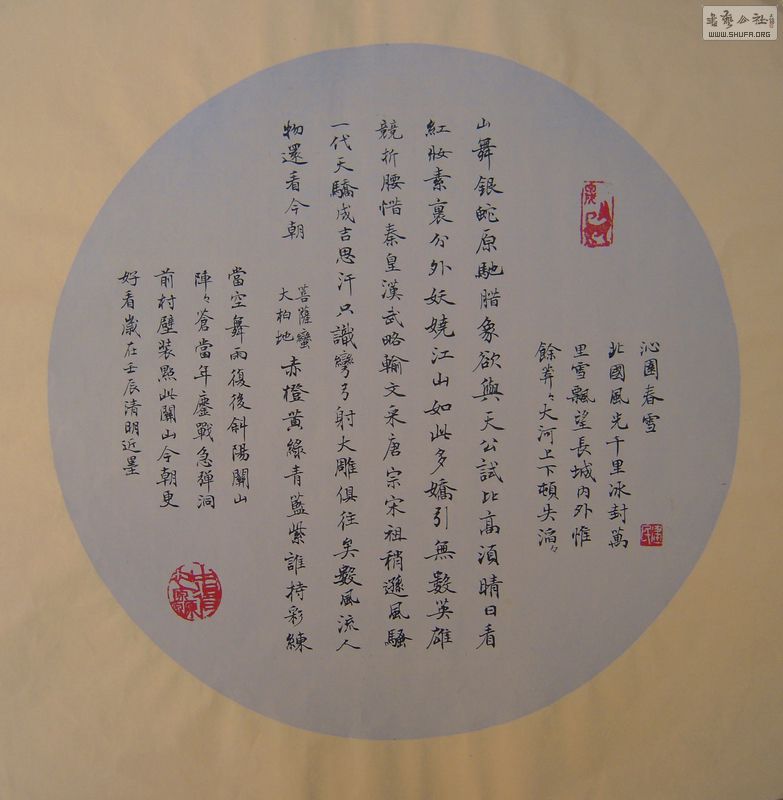 沁園春雪
北國風光千里冰封萬
里雪飄望長城內外惟
餘莽々大河上下頓失滔々
山舞銀蛇原馳腊象欲與天公試比高須晴日看
紅妝素裹分外妖嬈江山如此多嬌引無數英雄
競折腰惜秦皇漢武略輸文采唐宗宋祖稍遜風騷
一代天驕成吉思汗只識彎弓射大雕俱往矣數風流人
物還看今朝
菩薩蠻
大柏地
赤橙黃綠青藍紫誰持彩練
當空舞雨復後斜陽關山
陣々蒼當年鏖戰急彈洞
前村壁裝點此關山今朝更
好看歲在壬辰清明近墨
書藝公社
WWW.SHUFA.ORG